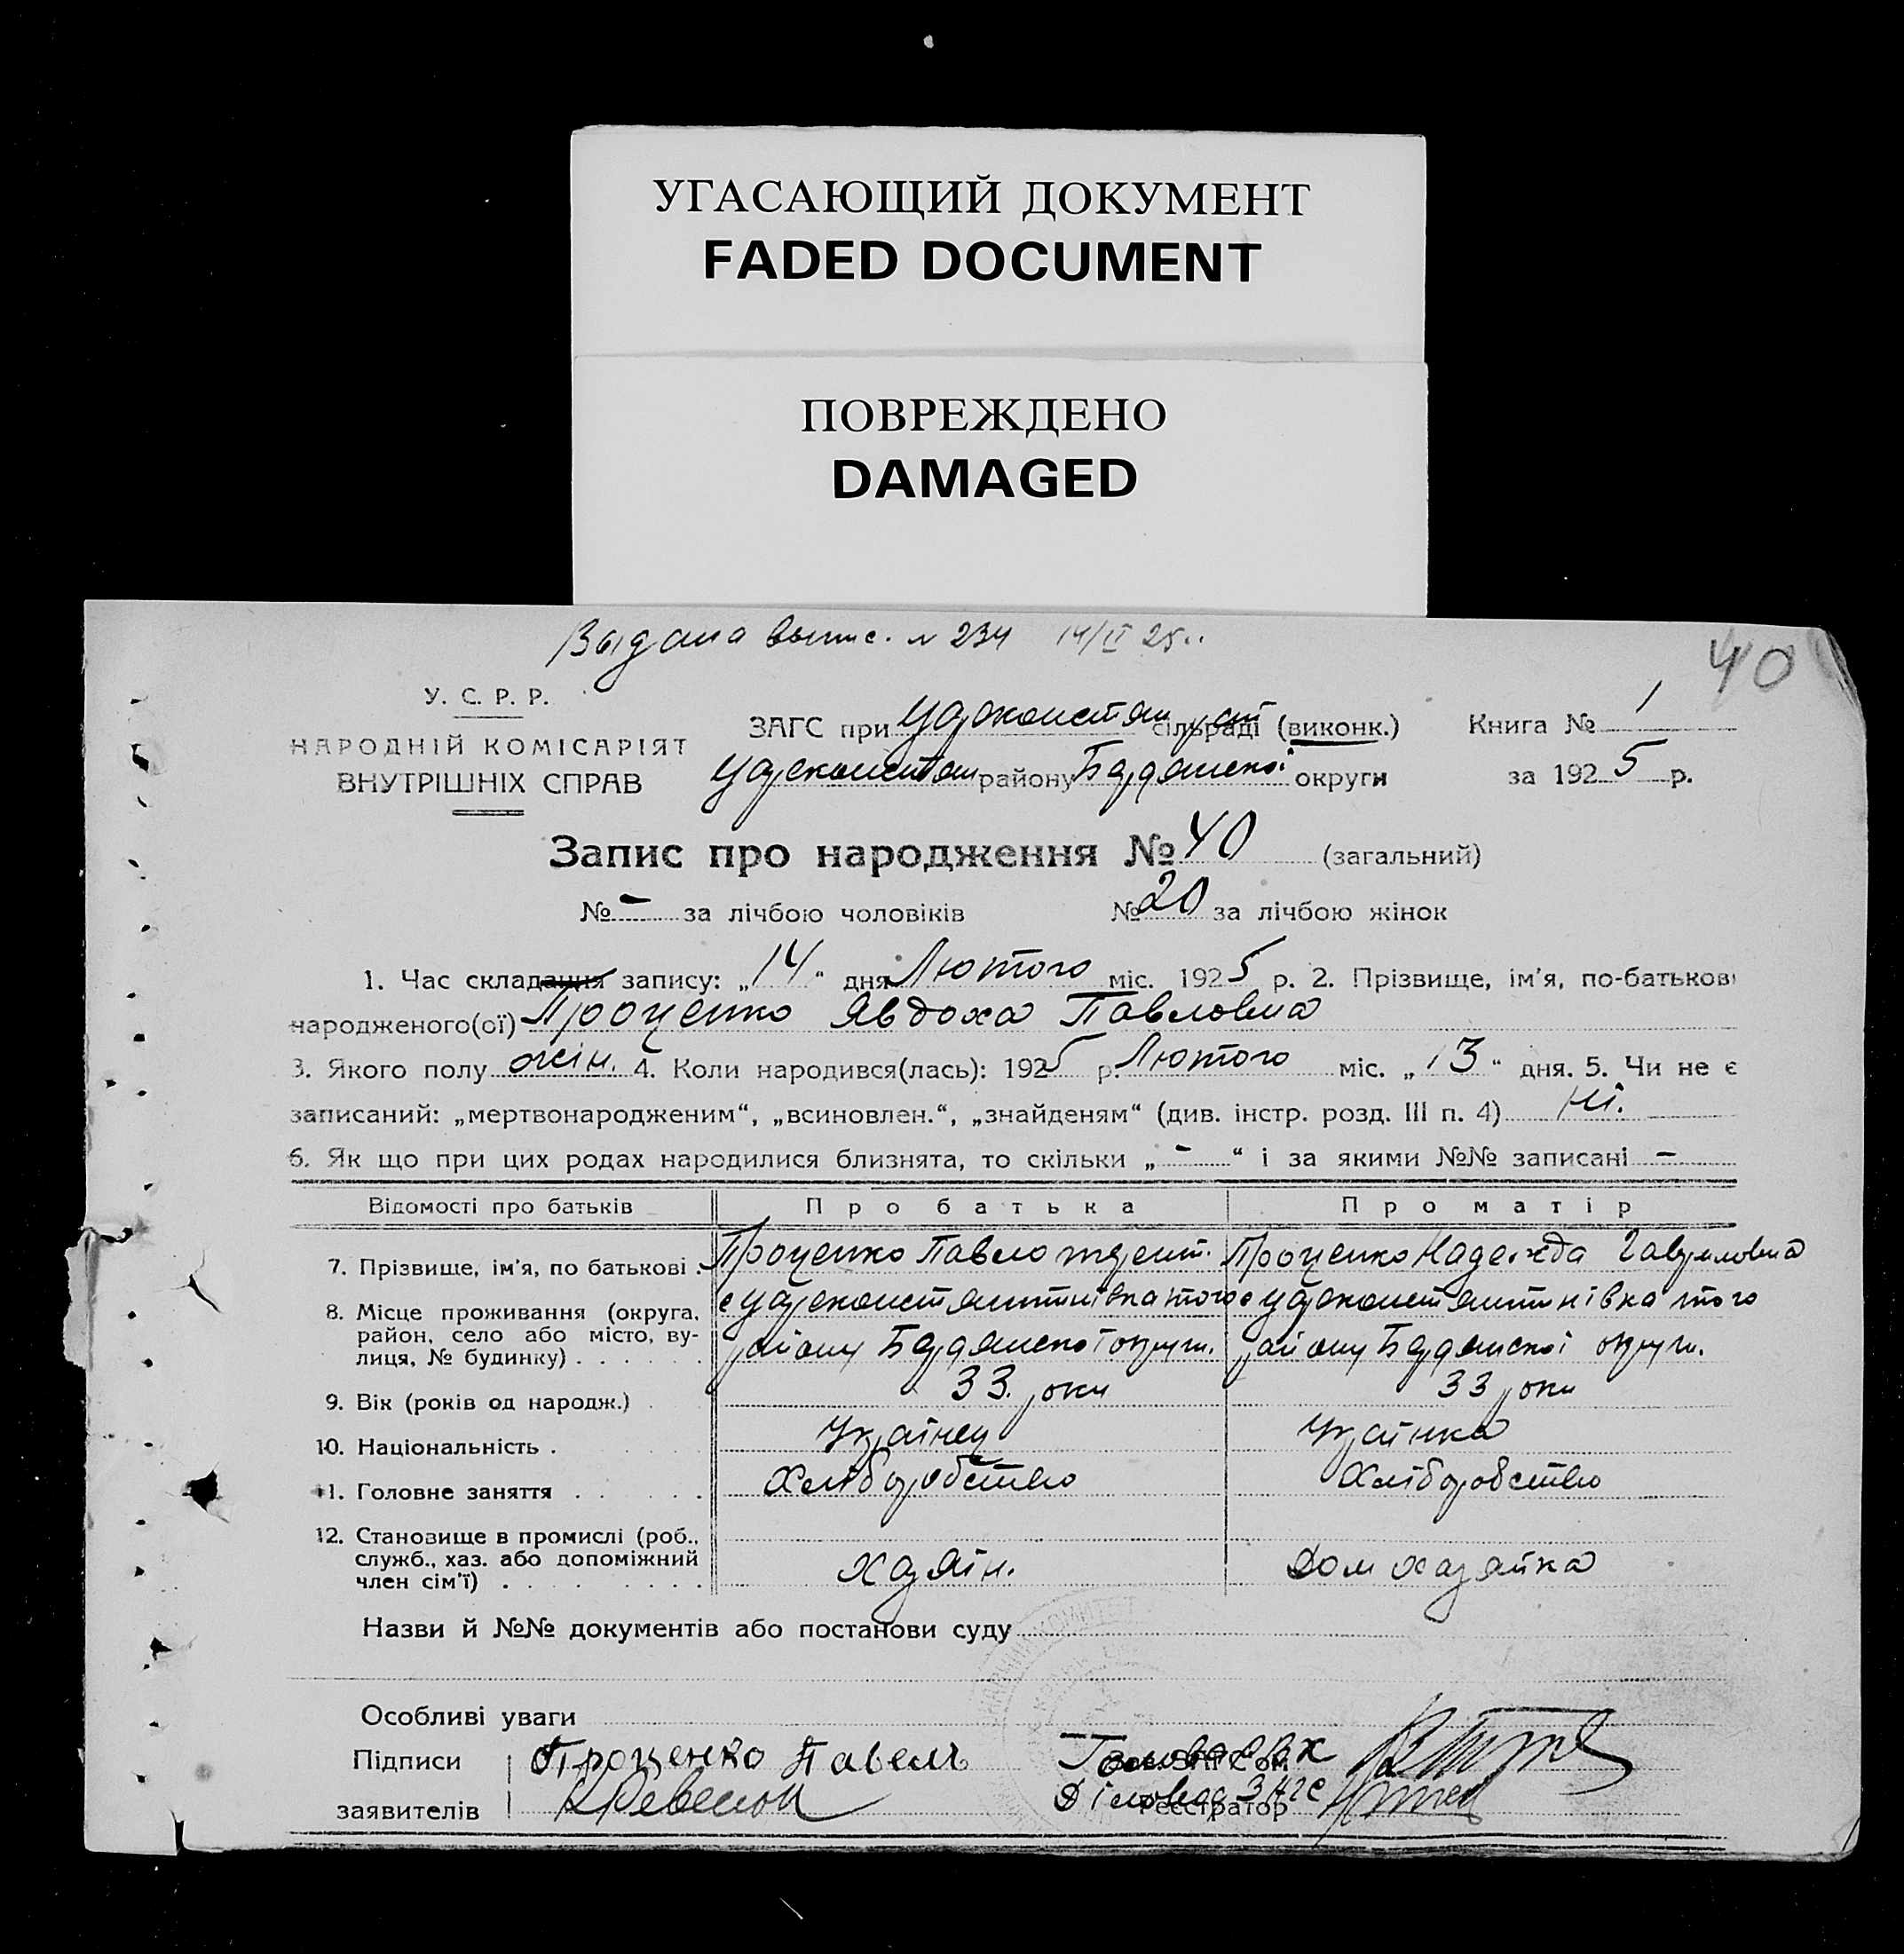 УГАСАЮЩИЙ ДОКУМЕНТ
FADED DOCUMENT
ПОВРЕЖДЕНО
DAMAGED
Видана выпис. № 234 14/II 25..
40
У. С. Р. Р.
НАРОДНІЙ КОМІСАРІЯТ
ВНУТРІШНІХ СПРАВ
ЗАГС при Цареконстан сільраді (виконк.) Книга № 1
Цареконстан району Бердянської округи за 1925 р.
Запис про народження № 40 (загальний)
№ - за лічбою чоловіків № 20 за лічбою жінок
1. Час складання запису: „14“ дня Лютого міс. 1925 р. 2. Прізвище, ім'я, по-батькові
народженого(ої) Проценко Явдоха Павловна
3. Якого полу жін. 4. Коли народився(лась): 1925 р. Лютого міс. „13“ дня. 5. Чи не є
записаний: „мертвонародженим“, „всиновлен.“, „знайденям“ (див. інстр. розд. III п. 4) Ні.
6. Як що при цих родах народилися близнята, то скільки „-“ і за якими №№ записані -
Відомості про батьків Про батька Про матір
7. Прізвище, ім'я, по батькові . Проценко Павло терент. Проценко Надежда Гавриловна
8. Місце проживання (округа, с Цареконстянтинівка того с Цареконстянтинівка того
район, село або місто, ву-
лиця, № будинку) . . . . . . району Бердянської округи. району Бердянської округи.
9. Вік (років од народж.) . 33. роки 33 роки
10. Національність . Українец Українка
11. Головне заняття . . . . Хліборобство Хліборобство
12. Становище в промислі (роб.,
служб., хаз. або допоміжний
член сім'ї) . . . . . . . . . Хазяін. Дом хазяйка
Назви й №№ документів або постанови суду
Особливі уваги
Підписи Проценко Павелъ Голова РВК
заявителів Діловод ЗАГС
Реєстратор